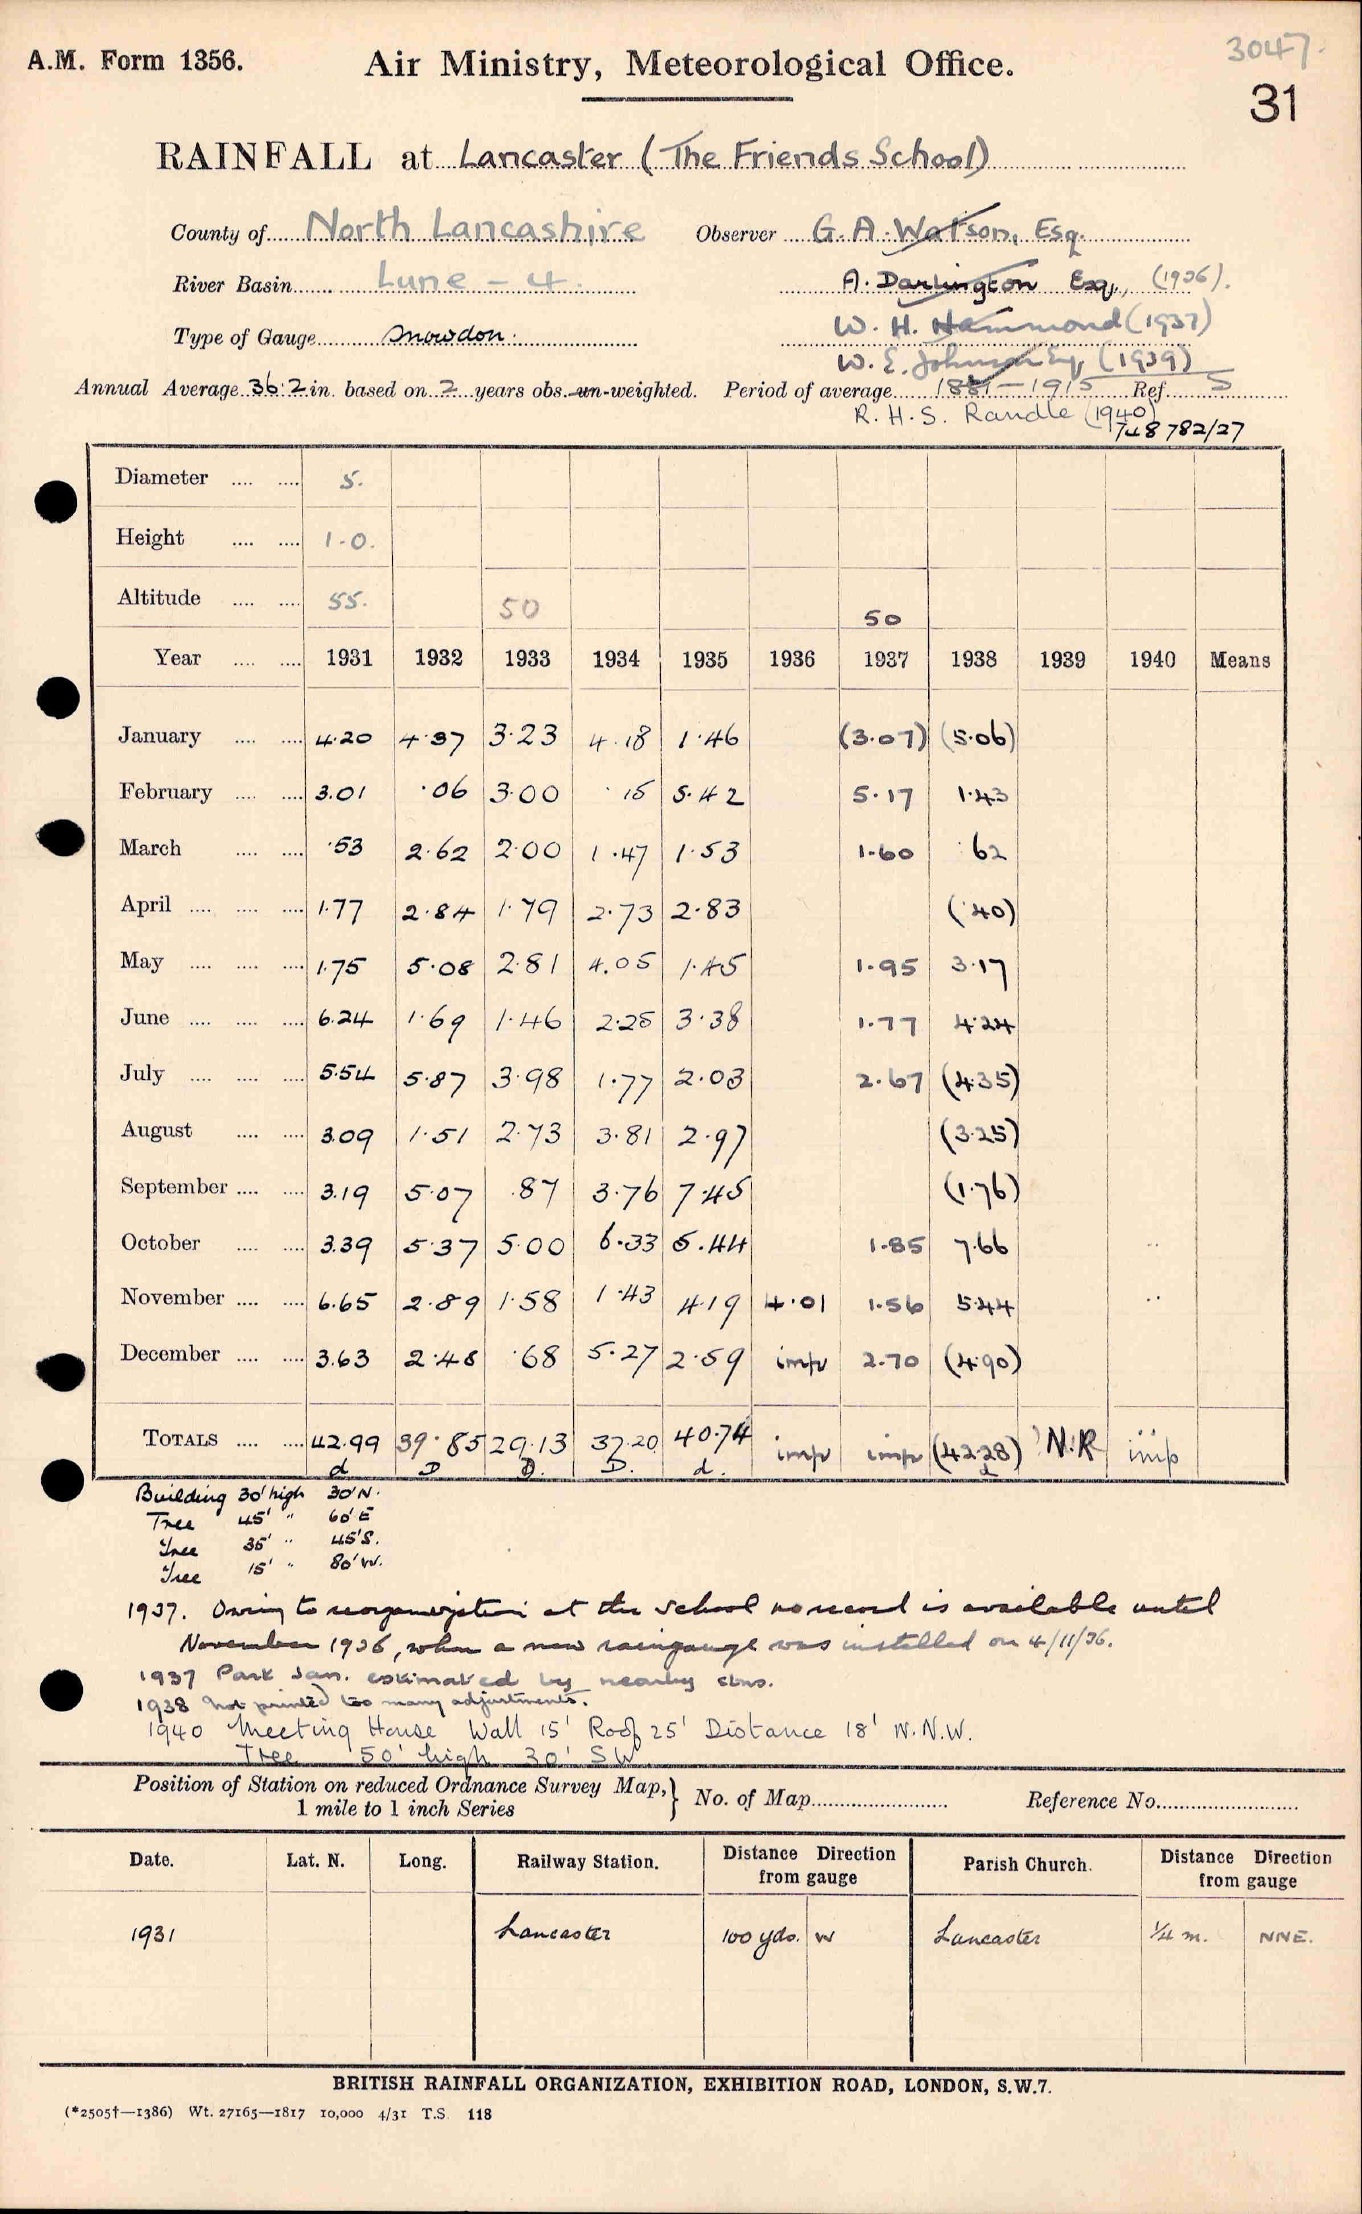 A.M. Form 1356.
Air Ministry, Meteorological Office.
3047.
31
RAINFALL at Lancaster (The Friends School)
County of North Lancashire Observer G. A. Watson, Esq.
River Basin Lune - 4. A. Darlington Esq., (1936).
Type of Gauge Snowdon. W. H. Hammond (1937)
W. E. Johnson Esq (1939)
Annual Average 36.2 in. based on 2 years obs. un-weighted. Period of average 1881-1915 Ref. S
R. H. S. Randle (1940)
748 782/27
Diameter .... .... 5.
Height .... .... 1-0.
Altitude .... .... 55. 50 50
Year .... .... 1931 1932 1933 1934 1935 1936 1937 1938 1939 1940 Means
January .... .... 4.20 4.37 3.23 4.18 1.46 (3.07) (5.06)
February .... .... 3.01 .06 3.00 .15 5.42 5.17 1.43
March .... .... .53 2.62 2.00 1.47 1.53 1.60 .62
April .... .... .... 1.77 2.84 1.79 2.73 2.83 (.40)
May .... .... .... 1.75 5.08 2.81 4.05 1.45 1.95 3.17
June .... .... .... 6.24 1.69 1.46 2.25 3.38 1.77 4.24
July .... .... .... 5.54 5.87 3.98 1.77 2.03 2.67 (4.35)
August .... .... 3.09 1.51 2.73 3.81 2.97 (3.25)
September .... .... 3.19 5.07 .87 3.76 7.45 (1.76)
October .... .... 3.39 5.37 5.00 6.33 5.44 1.85 7.66 ..
November .... .... 6.65 2.89 1.58 1.43 4.19 4.01 1.56 5.44 ..
December .... .... 3.63 2.48 .68 5.27 2.59 imp 2.70 (4.90)
TOTALS .... .... 42.99 39.85 29.13 37.20 40.74 imp imp (42.28) N.R imp
d D D. D. d. d
Building 30' high 30' N.
Tree 45' " 60' E
Tree 35' " 45' S.
Tree 15' " 80' W.
1937. Owing to reorganization at the school no record is available until
November 1936, when a new raingauge was installed on 4/11/36.
1937 Part Jan. estimated by nearby stns.
1938 Not printed too many adjustments.
1940 Meeting House Wall 15' Roof 25' Distance 18' N.N.W.
Tree 50' high 30' SW
Position of Station on reduced Ordnance Survey Map, } No. of Map Reference No.
1 mile to 1 inch Series
Date. Lat. N. Long. Railway Station. Distance Direction from gauge Parish Church. Distance Direction from gauge
1931 Lancaster 100 yds. W Lancaster 1/4 m. NNE.
BRITISH RAINFALL ORGANIZATION, EXHIBITION ROAD, LONDON, S.W.7.
(*2505†—1386) Wt. 27165—1817 10,000 4/31 T.S. 118